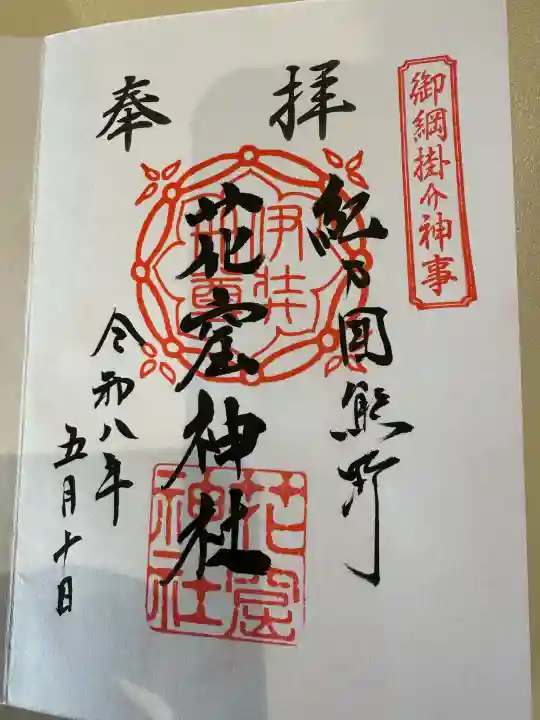 御綱掛け神事
奉拝
紀乃国熊野
花窟神社
令和八年
五月十日
伊弉冊尊
花窟神社